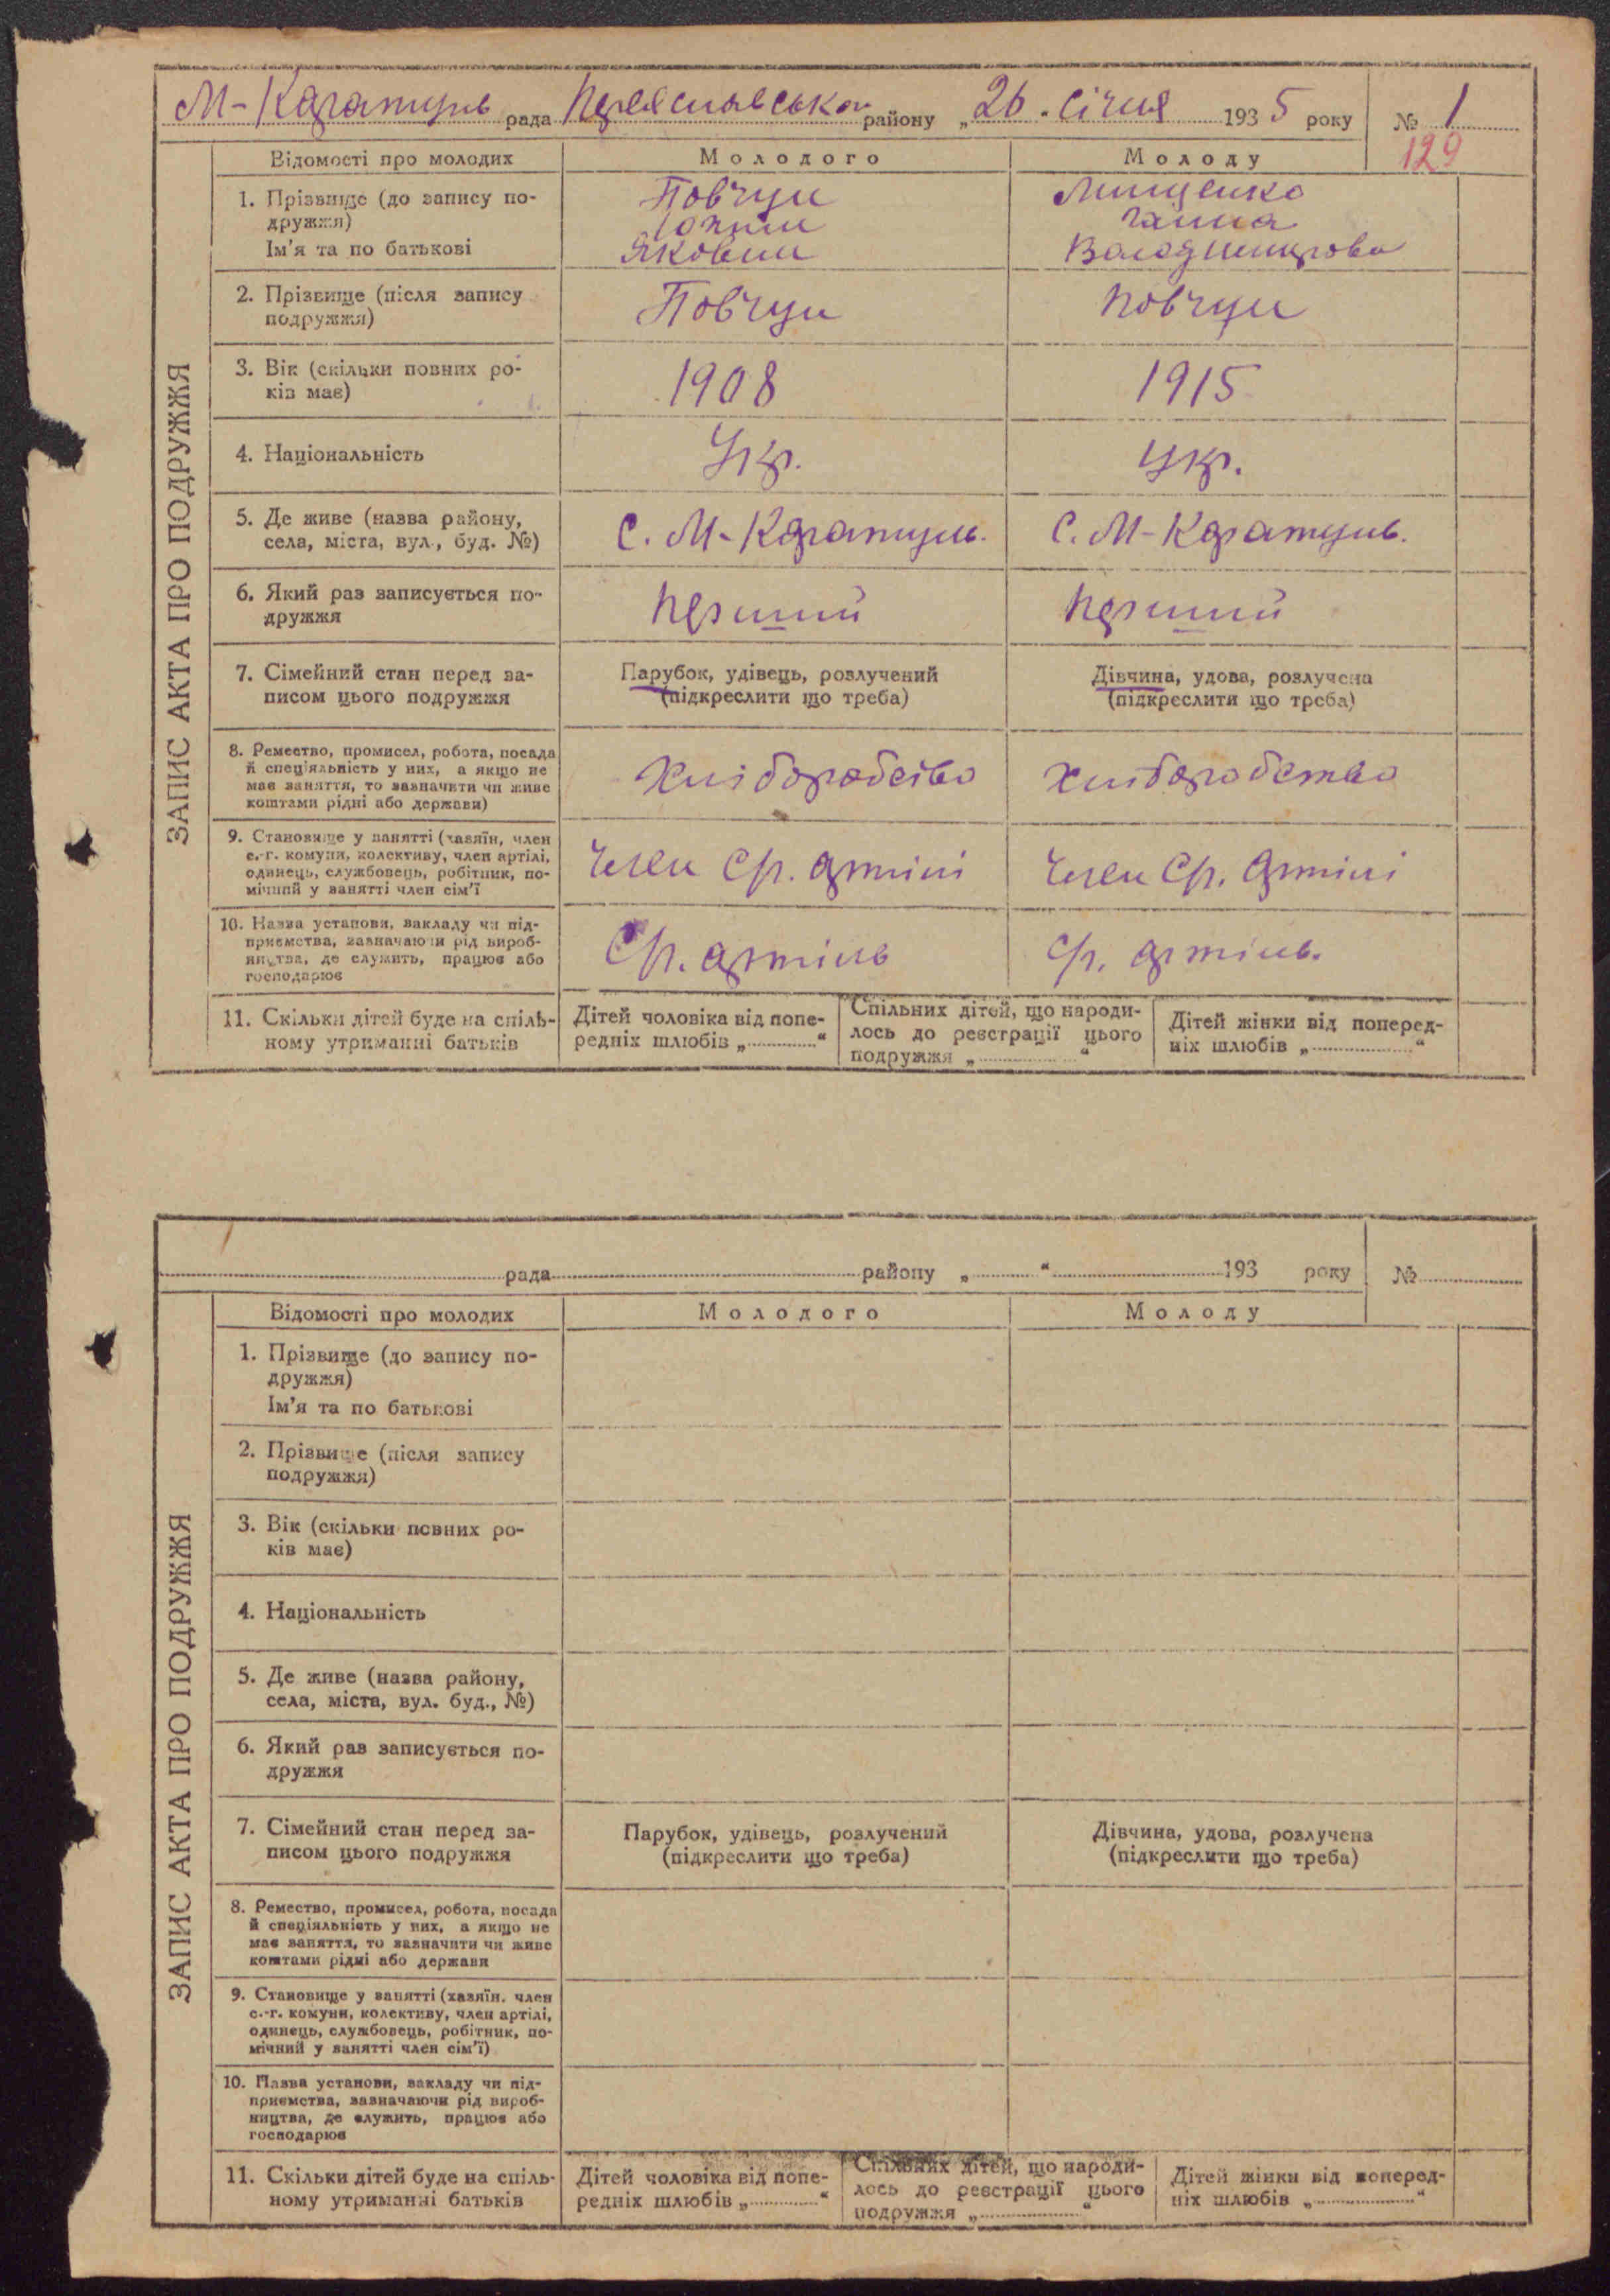 М-Каратуль рада Переяславського району „26. січня 1935 року № 1
129
ЗАПИС АКТА ПРО ПОДРУЖЖЯ
Відомості про молодих Молодого Молоду
1. Прізвище (до запису по-
дружжя)
Ім'я та по батькові
Повчун
Юхим
Яковин
Мищенко
Ганна
Володимирова
2. Прізвище (після запису
подружжя)
Повчун Повчун
3. Вік (скільки повних ро-
ків має)
1908 1915
4. Національність Укр. Укр.
5. Де живе (назва району,
села, міста, вул., буд. №)
С. М-Каратуль. С. М-Каратуль.
6. Який раз записується по-
дружжя
Перший Перший
7. Сімейний стан перед за-
писом цього подружжя
Парубок, удівець, розлучений
(підкреслити що треба)
Дівчина, удова, розлучена
(підкреслити що треба)
8. Ремество, промисел, робота, посада
й спеціяльність у них, а якщо не
має заняття, то зазначити чи живе
коштами рідні або держави)
Хліборобство Хліборобство
9. Становище у занятті (хазяїн, член
с.-г. комуни, колективу, член артілі,
одинець, службовець, робітник, по-
мічний у занятті член сім'ї
Член Ср. артілі Член Ср. Артілі
10. Назва установи, закладу чи під-
приємства, зазначаючи рід вироб-
ництва, де служить, працює або
господарює
Ср. артіль Ср. артіль.
11. Скільки дітей буде на спіль-
ному утриманні батьків
Дітей чоловіка від попе-
редніх шлюбів „ “
Спільних дітей, що народи-
лось до реєстрації цього
подружжя „ “
Дітей жінки від поперед-
ніх шлюбів „ “
рада району „ “ 193 року №
ЗАПИС АКТА ПРО ПОДРУЖЖЯ
Відомості про молодих Молодого Молоду
1. Прізвище (до запису по-
дружжя)
Ім'я та по батькові
2. Прізвище (після запису
подружжя)
3. Вік (скільки повних ро-
ків має)
4. Національність
5. Де живе (назва району,
села, міста, вул. буд., №)
6. Який раз записується по-
дружжя
7. Сімейний стан перед за-
писом цього подружжя
Парубок, удівець, розлучений
(підкреслити що треба)
Дівчина, удова, розлучена
(підкреслити що треба)
8. Ремество, промисел, робота, посада
й спеціяльність у них, а якщо не
має заняття, то зазначити чи живе
коштами рідні або держави
9. Становище у занятті (хазяїн, член
с.-г. комуни, колективу, член артілі,
одинець, службовець, робітник, по-
мічний у занятті член сім'ї)
10. Назва установи, закладу чи під-
приємства, зазначаючи рід вироб-
ництва, де служить, працює або
господарює
11. Скільки дітей буде на спіль-
ному утриманні батьків
Дітей чоловіка від попе-
редніх шлюбів „ “
Спільних дітей, що народи-
лось до реєстрації цього
подружжя „ “
Дітей жінки від поперед-
ніх шлюбів „ “